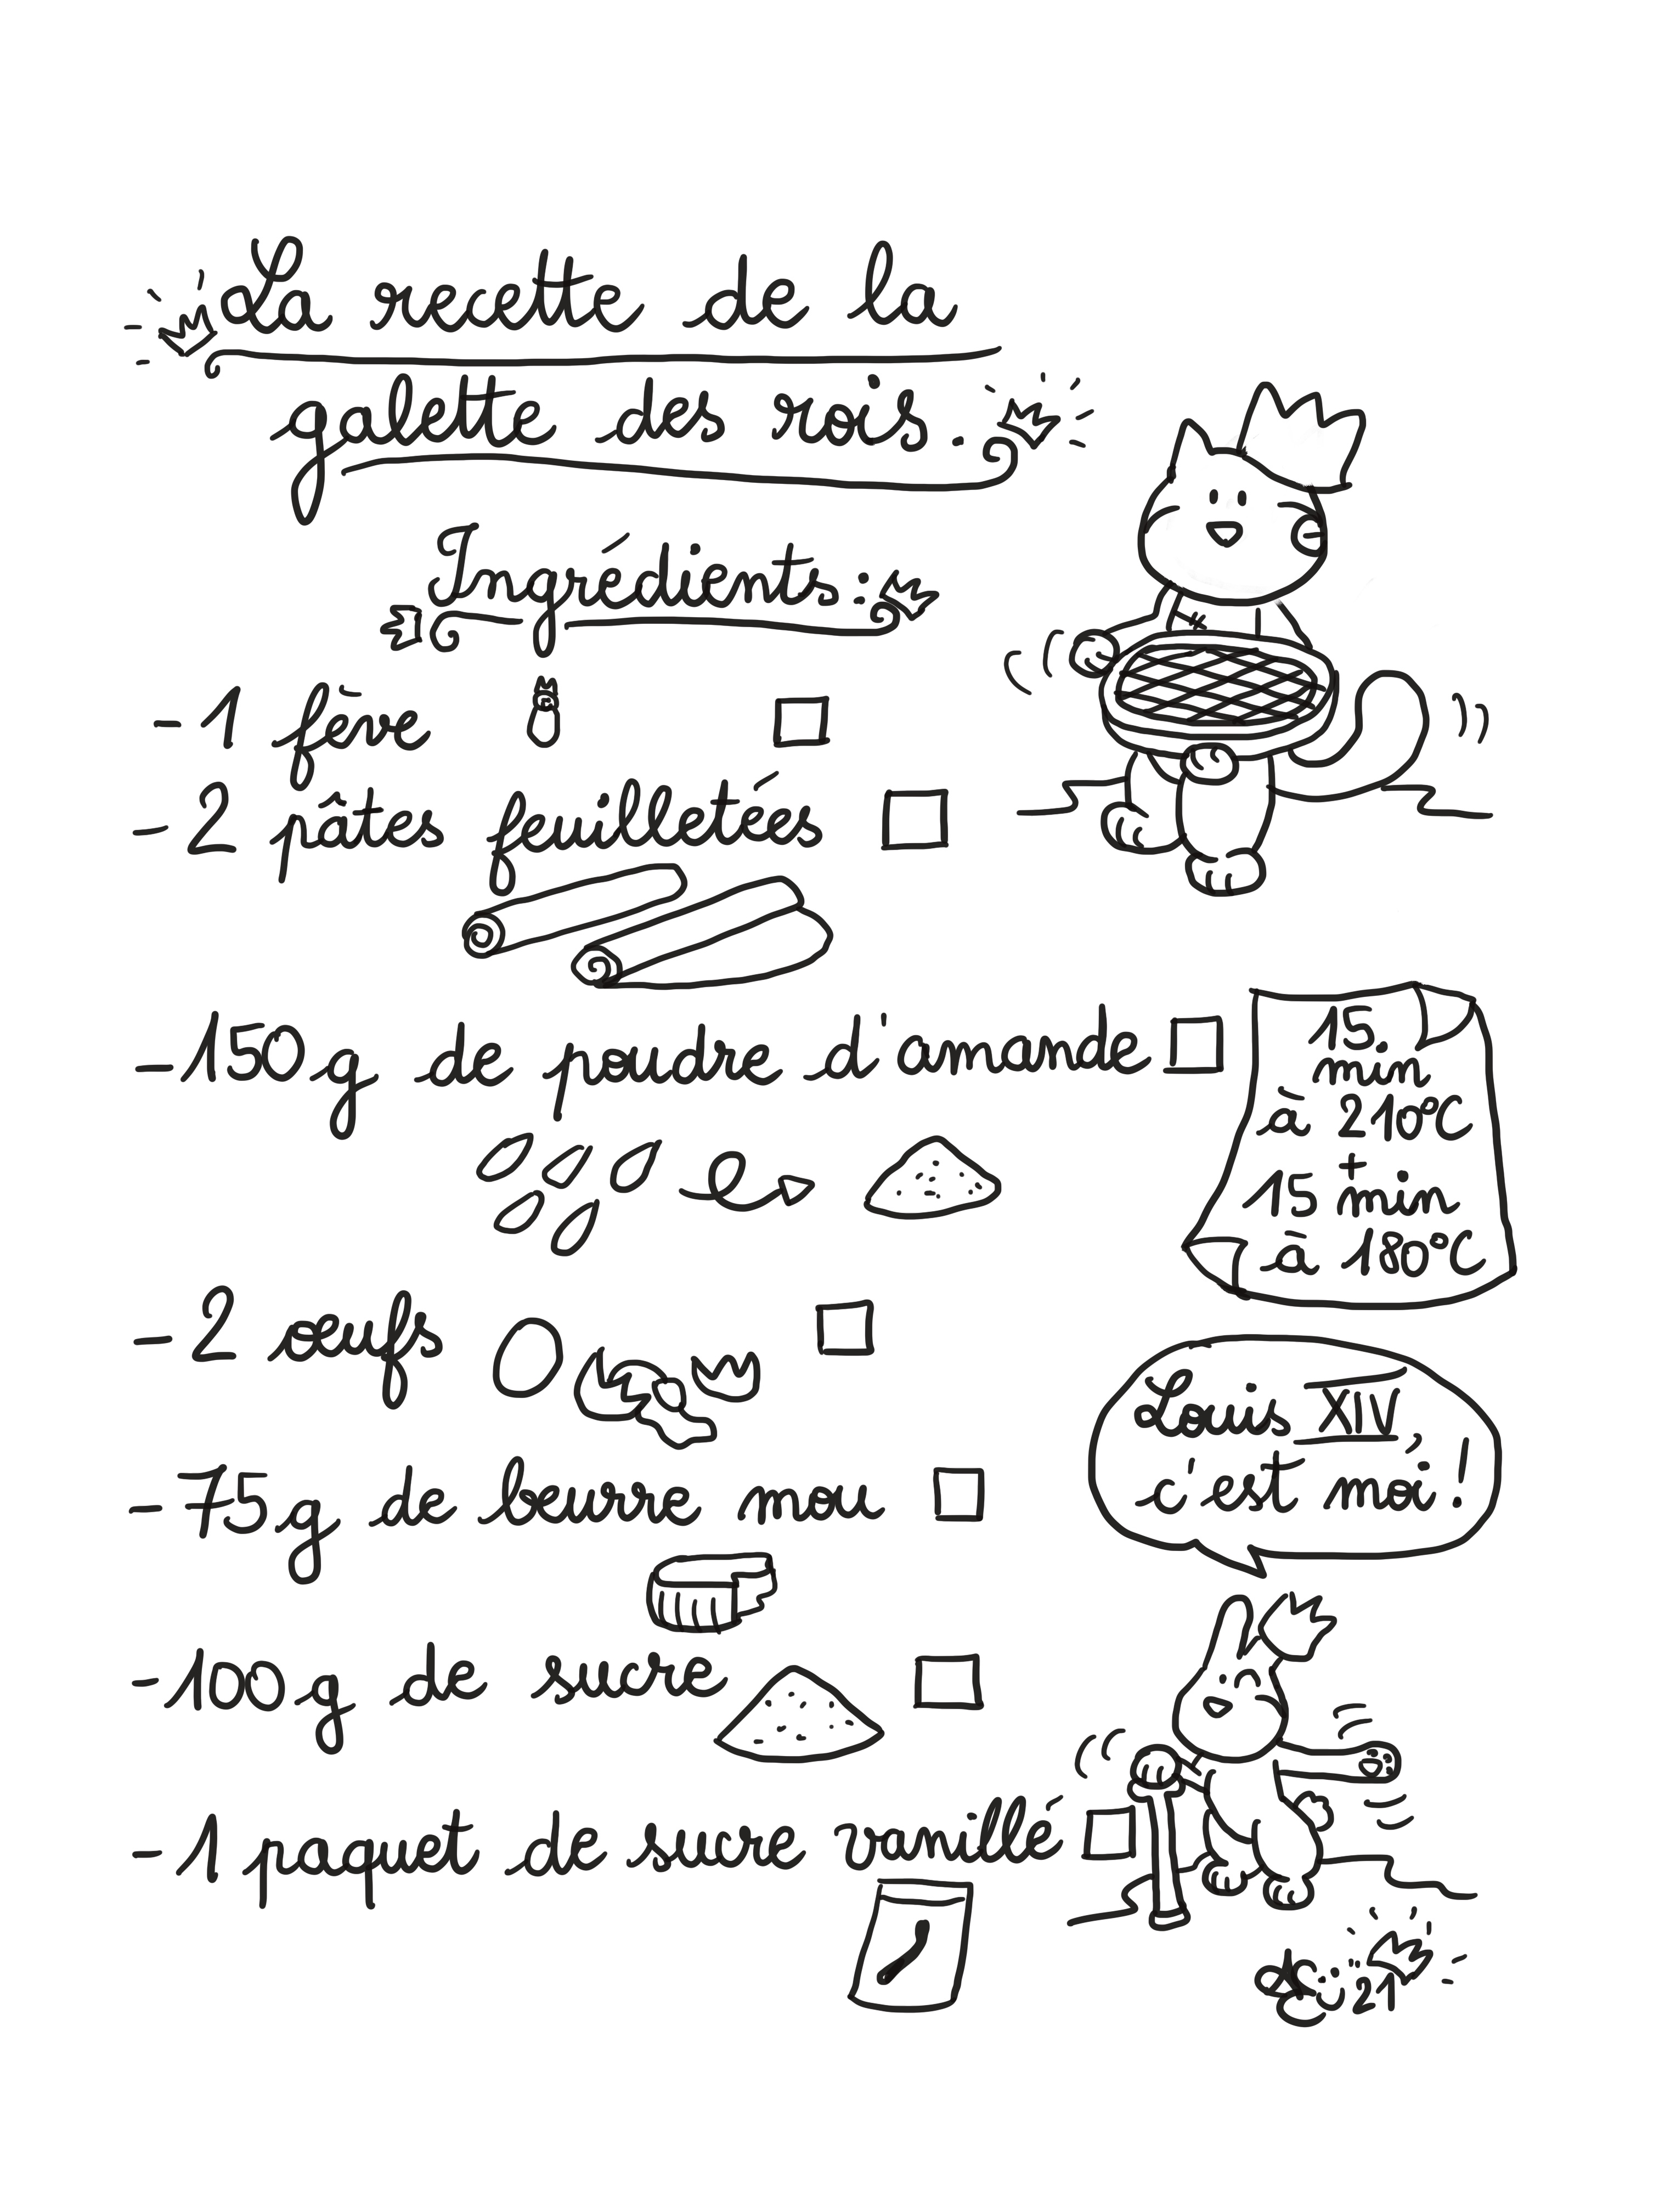 La recette de la
galette des rois.
Ingrédients :
- 1 fève
- 2 pâtes feuilletées
- 150 g de poudre d'amande
15 min
à 210°C
+
15 min
à 180°C
- 2 œufs
Louis XIV,
c'est moi !
- 75 g de beurre mou
- 100 g de sucre
- 1 paquet de sucre vanillé
21